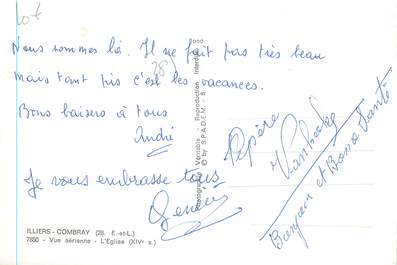 lot
Nous sommes là. Il ne fait pas très beau
mais tant pis c'est les vacances.
Bons baisers à tous
André
Je vous embrasse tous
Pépère
Bonjour et Bonne Santé
28
Photographie Véritable - Reproduction Interdite
© by S.P.A.D.E.M. -
ILLIERS - COMBRAY (28. E.-et-L.)
7850 - Vue aérienne - L'Eglise (XIVe s.)